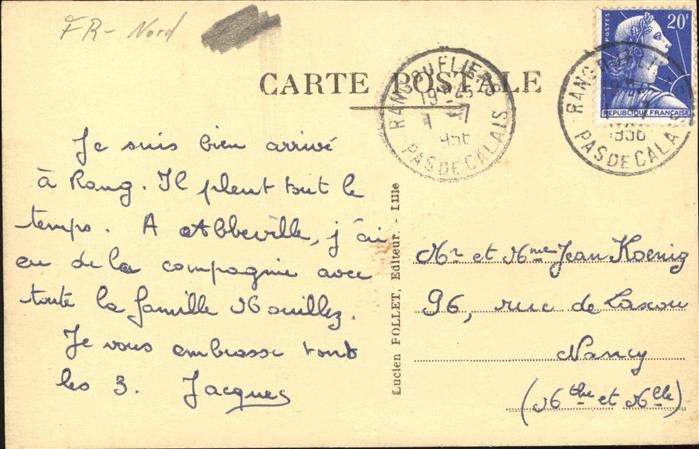 FR- Nord
CARTE POSTALE
RANG DU FLIERS
19H45
1 -7
1958
PAS DE CALAIS
POSTES
20F
REPUBLIQUE FRANÇAISE
PAS DE CALAIS
Je suis bien arrivé
à Rang. Il pleut tout le
temps. A Abbeville, j'ai
eu de la compagnie avec
toute la famille Mouillez.
Je vous embrasse tous
les 3. Jacques
Lucien POLLET, Editeur. - Lille
Mr et Mme Jean Koenig
96, rue de Laxou
Nancy
(Mthe et Mlle)